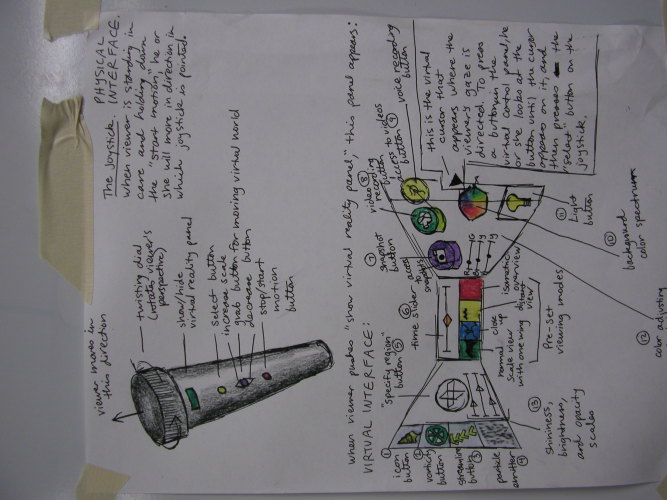 The Joystick: PHYSICAL
INTERFACE.
When viewer is standing in
cave and holding down
the "start motion", he or
she will move in direction in
which joystick is pointed.
viewer moves in
this direction
twisting dial
(rotates viewer's
perspective)
show/hide
virtual reality panel
select button
increase scale
grab button for moving virtual world
decrease button
stop/start
motion
button
when viewer pushes "show virtual reality panel," this panel appears:
VIRTUAL INTERFACE:
① icon
button
② vorticity
button
streamline
button ③
particle
emitter
④
"specify region"
button ⑤
⑥
time slider
⑦ snapshot
button
access
to
snapshots
video ⑧
recording
button
access to videos
button ⑨
voice recording
button
this is the virtual
cursor that
appears where the
viewer's gaze is
directed. To press
a button in the
virtual control panel, he
or she looks at the
button until the cursor
appears on it, and
then presses the
"select" button on the
joystick.
R
G
B
Y
normal
scale view
close
up
with one wing
distant
view
isometric
overview
Pre-set
viewing modes.
⑪ Light
button
⑩ background
color spectrum
⑫ color adjusting
⑬ shininess,
brightness,
and opacity
scales